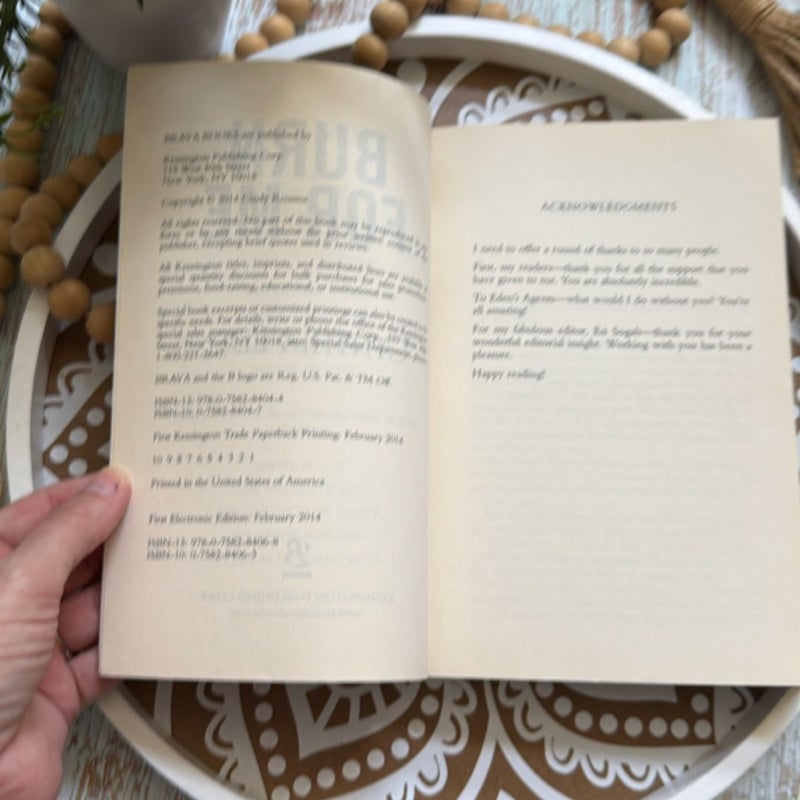 BRAVA BOOKS are published by
Kensington Publishing Corp.
119 West 40th Street
New York, NY 10018
Copyright © 2014 Cindy Roussos
All rights reserved. No part of this book may be reproduced in
form or by any means without the prior written consent of the
publisher, excepting brief quotes used in reviews.
All Kensington titles, imprints, and distributed lines are available
special quantity discounts for bulk purchases for sales promotion
premiums, fund-raising, educational, or institutional use.
Special book excerpts or customized printings can also be created
specific needs. For details, write or phone the office of the Kensington
special sales manager: Kensington Publishing Corp., 119 West
Street, New York, NY 10018, attn: Special Sales Department, phone
1-800-221-2647.
BRAVA and the B logo are Reg. U.S. Pat. & TM Off.
ISBN-13: 978-0-7582-8404-4
ISBN-10: 0-7582-8404-7
First Kensington Trade Paperback Printing: February 2014
10 9 8 7 6 5 4 3 2 1
Printed in the United States of America
First Electronic Edition: February 2014
ISBN-13: 978-0-7582-8406-8
ISBN-10: 0-7582-8406-3
ACKNOWLEDGMENTS
I need to offer a round of thanks to so many people.
First, my readers—thank you for all the support that you
have given to me. You are absolutely incredible.
To Eden's Agents—what would I do without you? You're
all amazing!
For my fabulous editor, Esi Sogah—thank you for your
wonderful editorial insight. Working with you has been a
pleasure.
Happy reading!